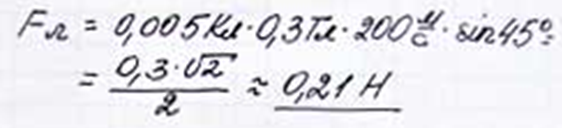 Fл = 0,005Кл·0,3Тл·200 м/с · sin45°=
= 0,3·√2/2 ≈ 0,21 Н